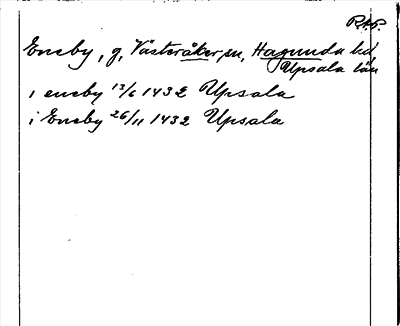 R.A.P.
Eneby, g, Västeråker sn, Hagunda hd
Upsala län
i eneby 13/6 1432 Upsala
i Eneby 26/11 1432 Upsala